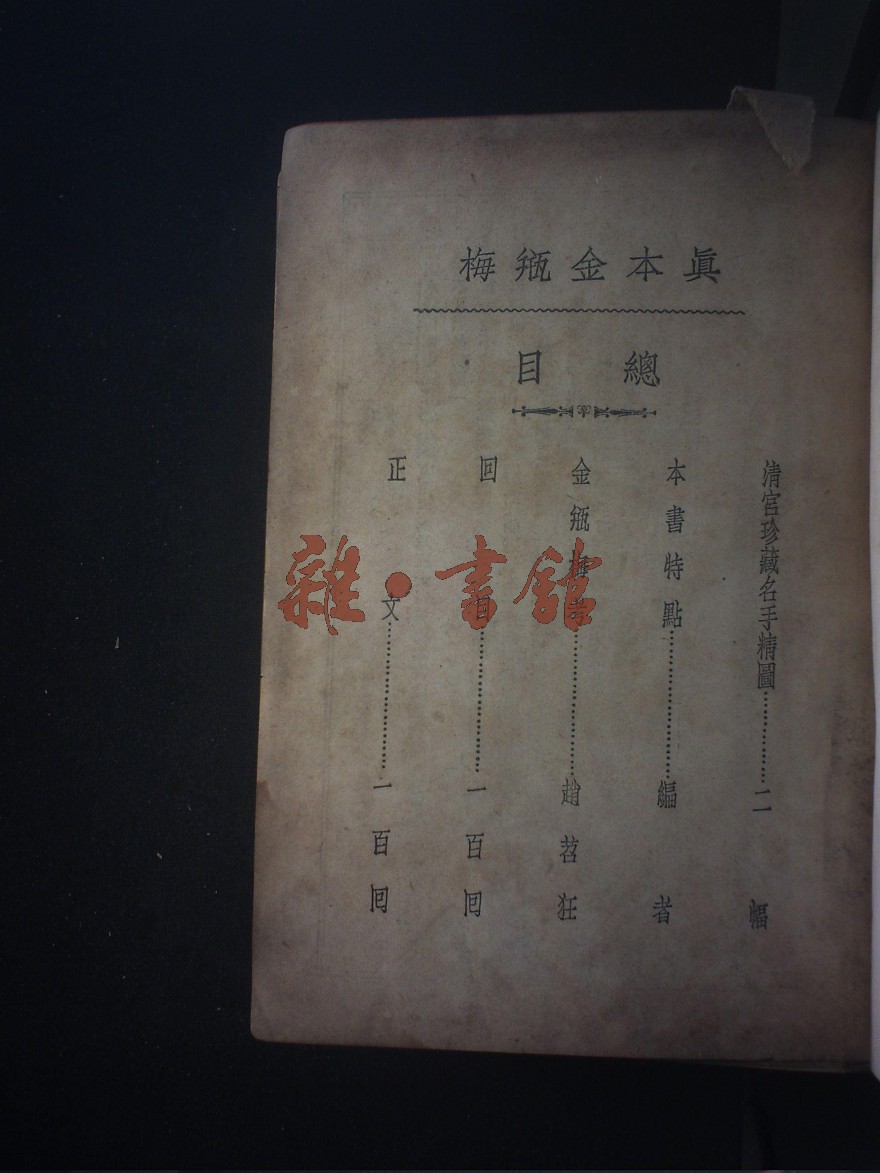 眞本金瓶梅
總目
清宮珍藏名手精圖…………二幅
本書特點…………編者
金瓶梅考…………趙苕狂
回目…………一百回
正文…………一百回
雜·書館